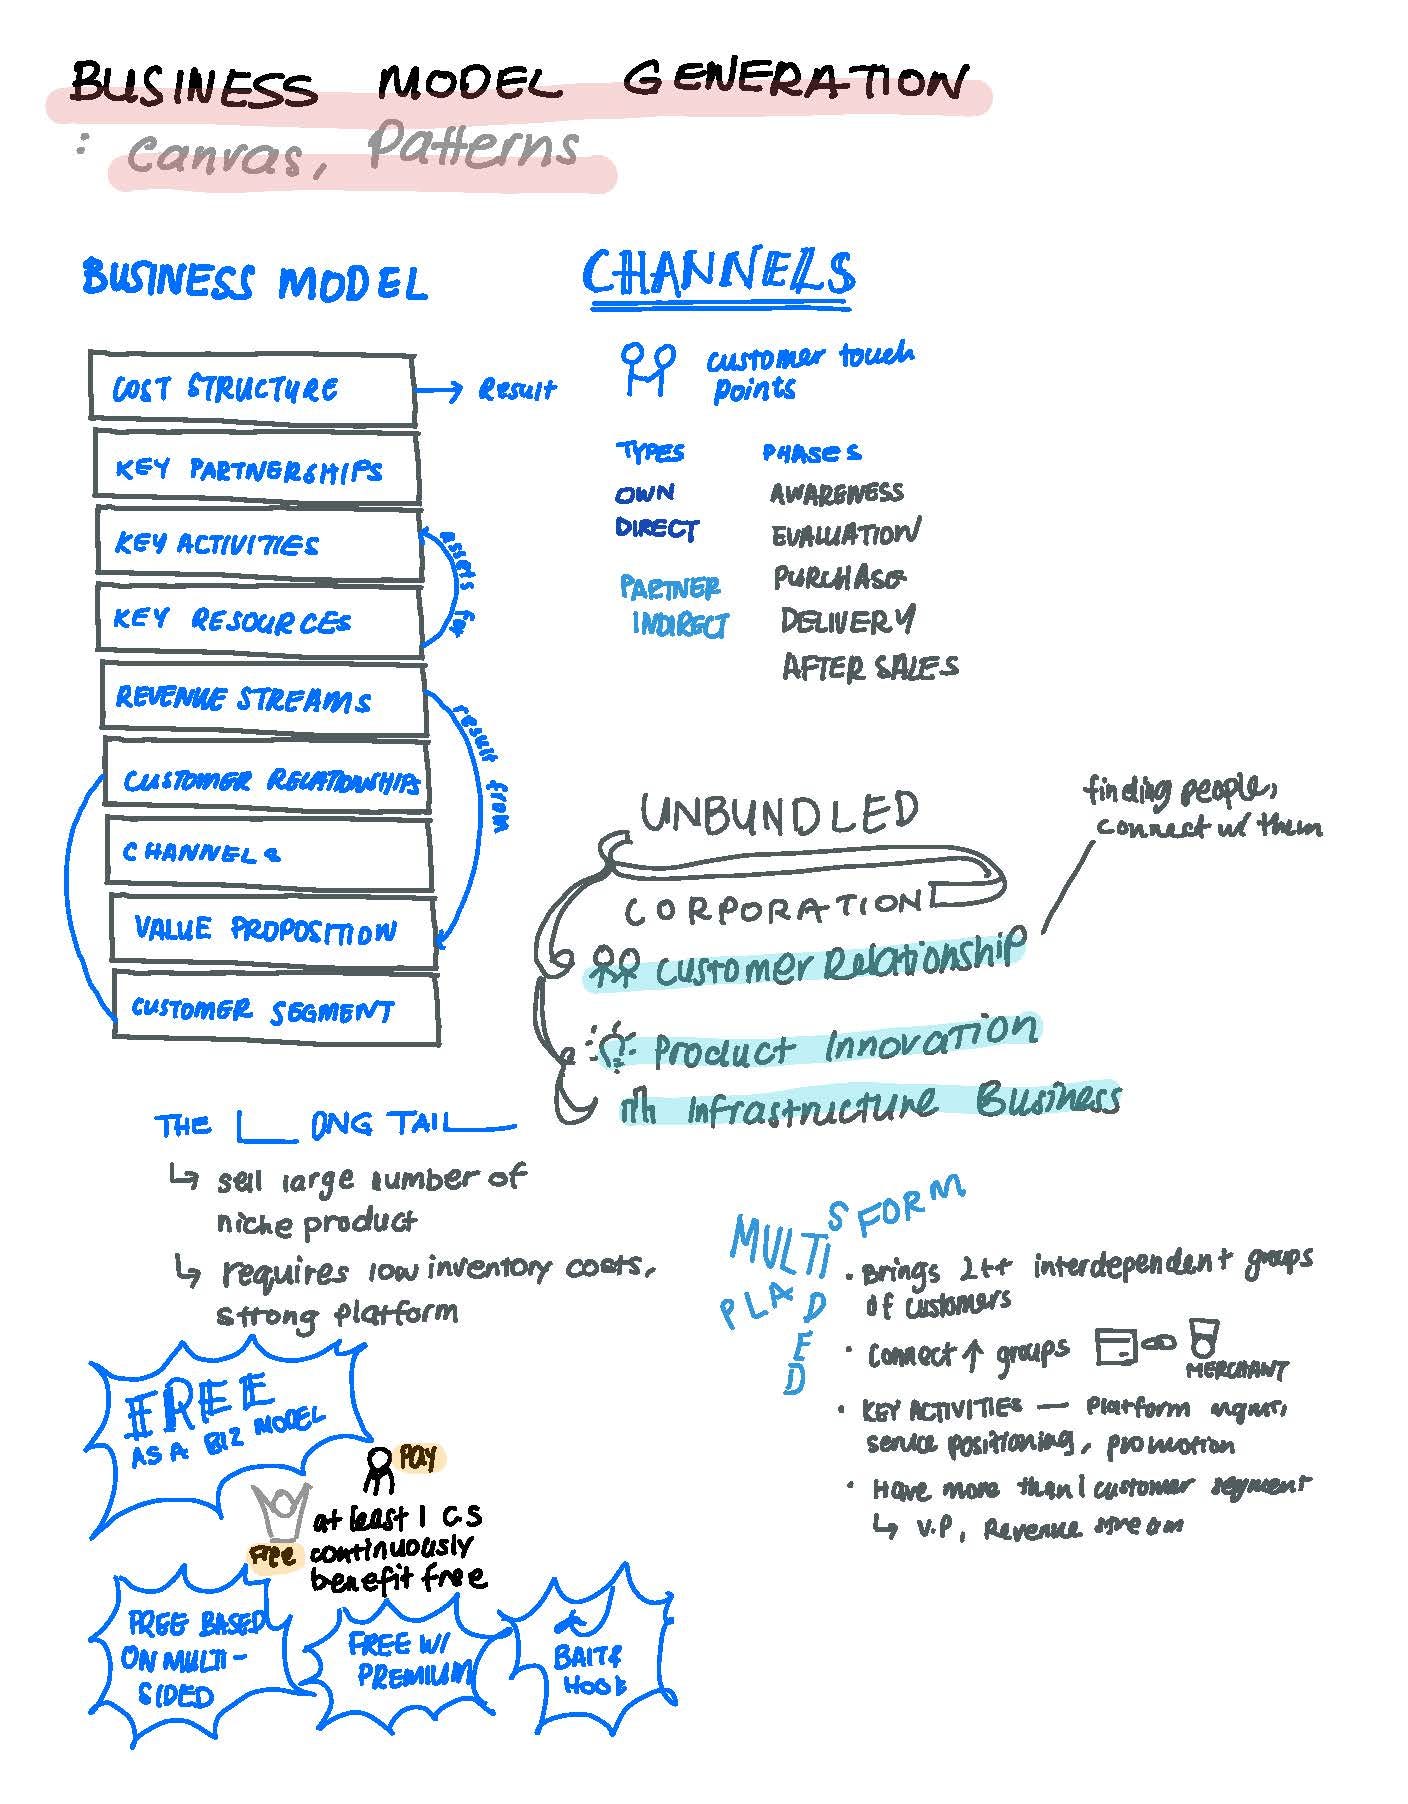 BUSINESS MODEL GENERATION
: Canvas, Patterns
BUSINESS MODEL
COST STRUCTURE → Result
KEY PARTNERSHIPS
KEY ACTIVITIES
assets for
KEY RESOURCES
REVENUE STREAMS
result from
CUSTOMER RELATIONSHIPS
CHANNELS
VALUE PROPOSITION
CUSTOMER SEGMENT
CHANNELS
customer touch
points
TYPES
OWN
DIRECT
PARTNER
INDIRECT
PHASES
AWARENESS
EVALUATION
PURCHASE
DELIVERY
AFTER SALES
UNBUNDLED
CORPORATION
Customer Relationship
finding people,
connect w/ them
Product Innovation
Infrastructure Business
THE LONG TAIL
↳ sell large number of
niche product
↳ requires low inventory costs,
strong platform
MULTI SIDED
PLA FORM
• Brings 2++ interdependent groups
of customers
• Connect ↑ groups
MERCHANT
• KEY ACTIVITIES — Platform mgmt,
service positioning, promotion
• Have more than 1 customer segment
↳ V.P, Revenue stream
FREE
AS A BIZ MODEL
Pay
Free
at least 1 CS
continuously
benefit free
FREE BASED
ON MULTI-
SIDED
FREE W/
PREMIUM
BAIT &
HOOK